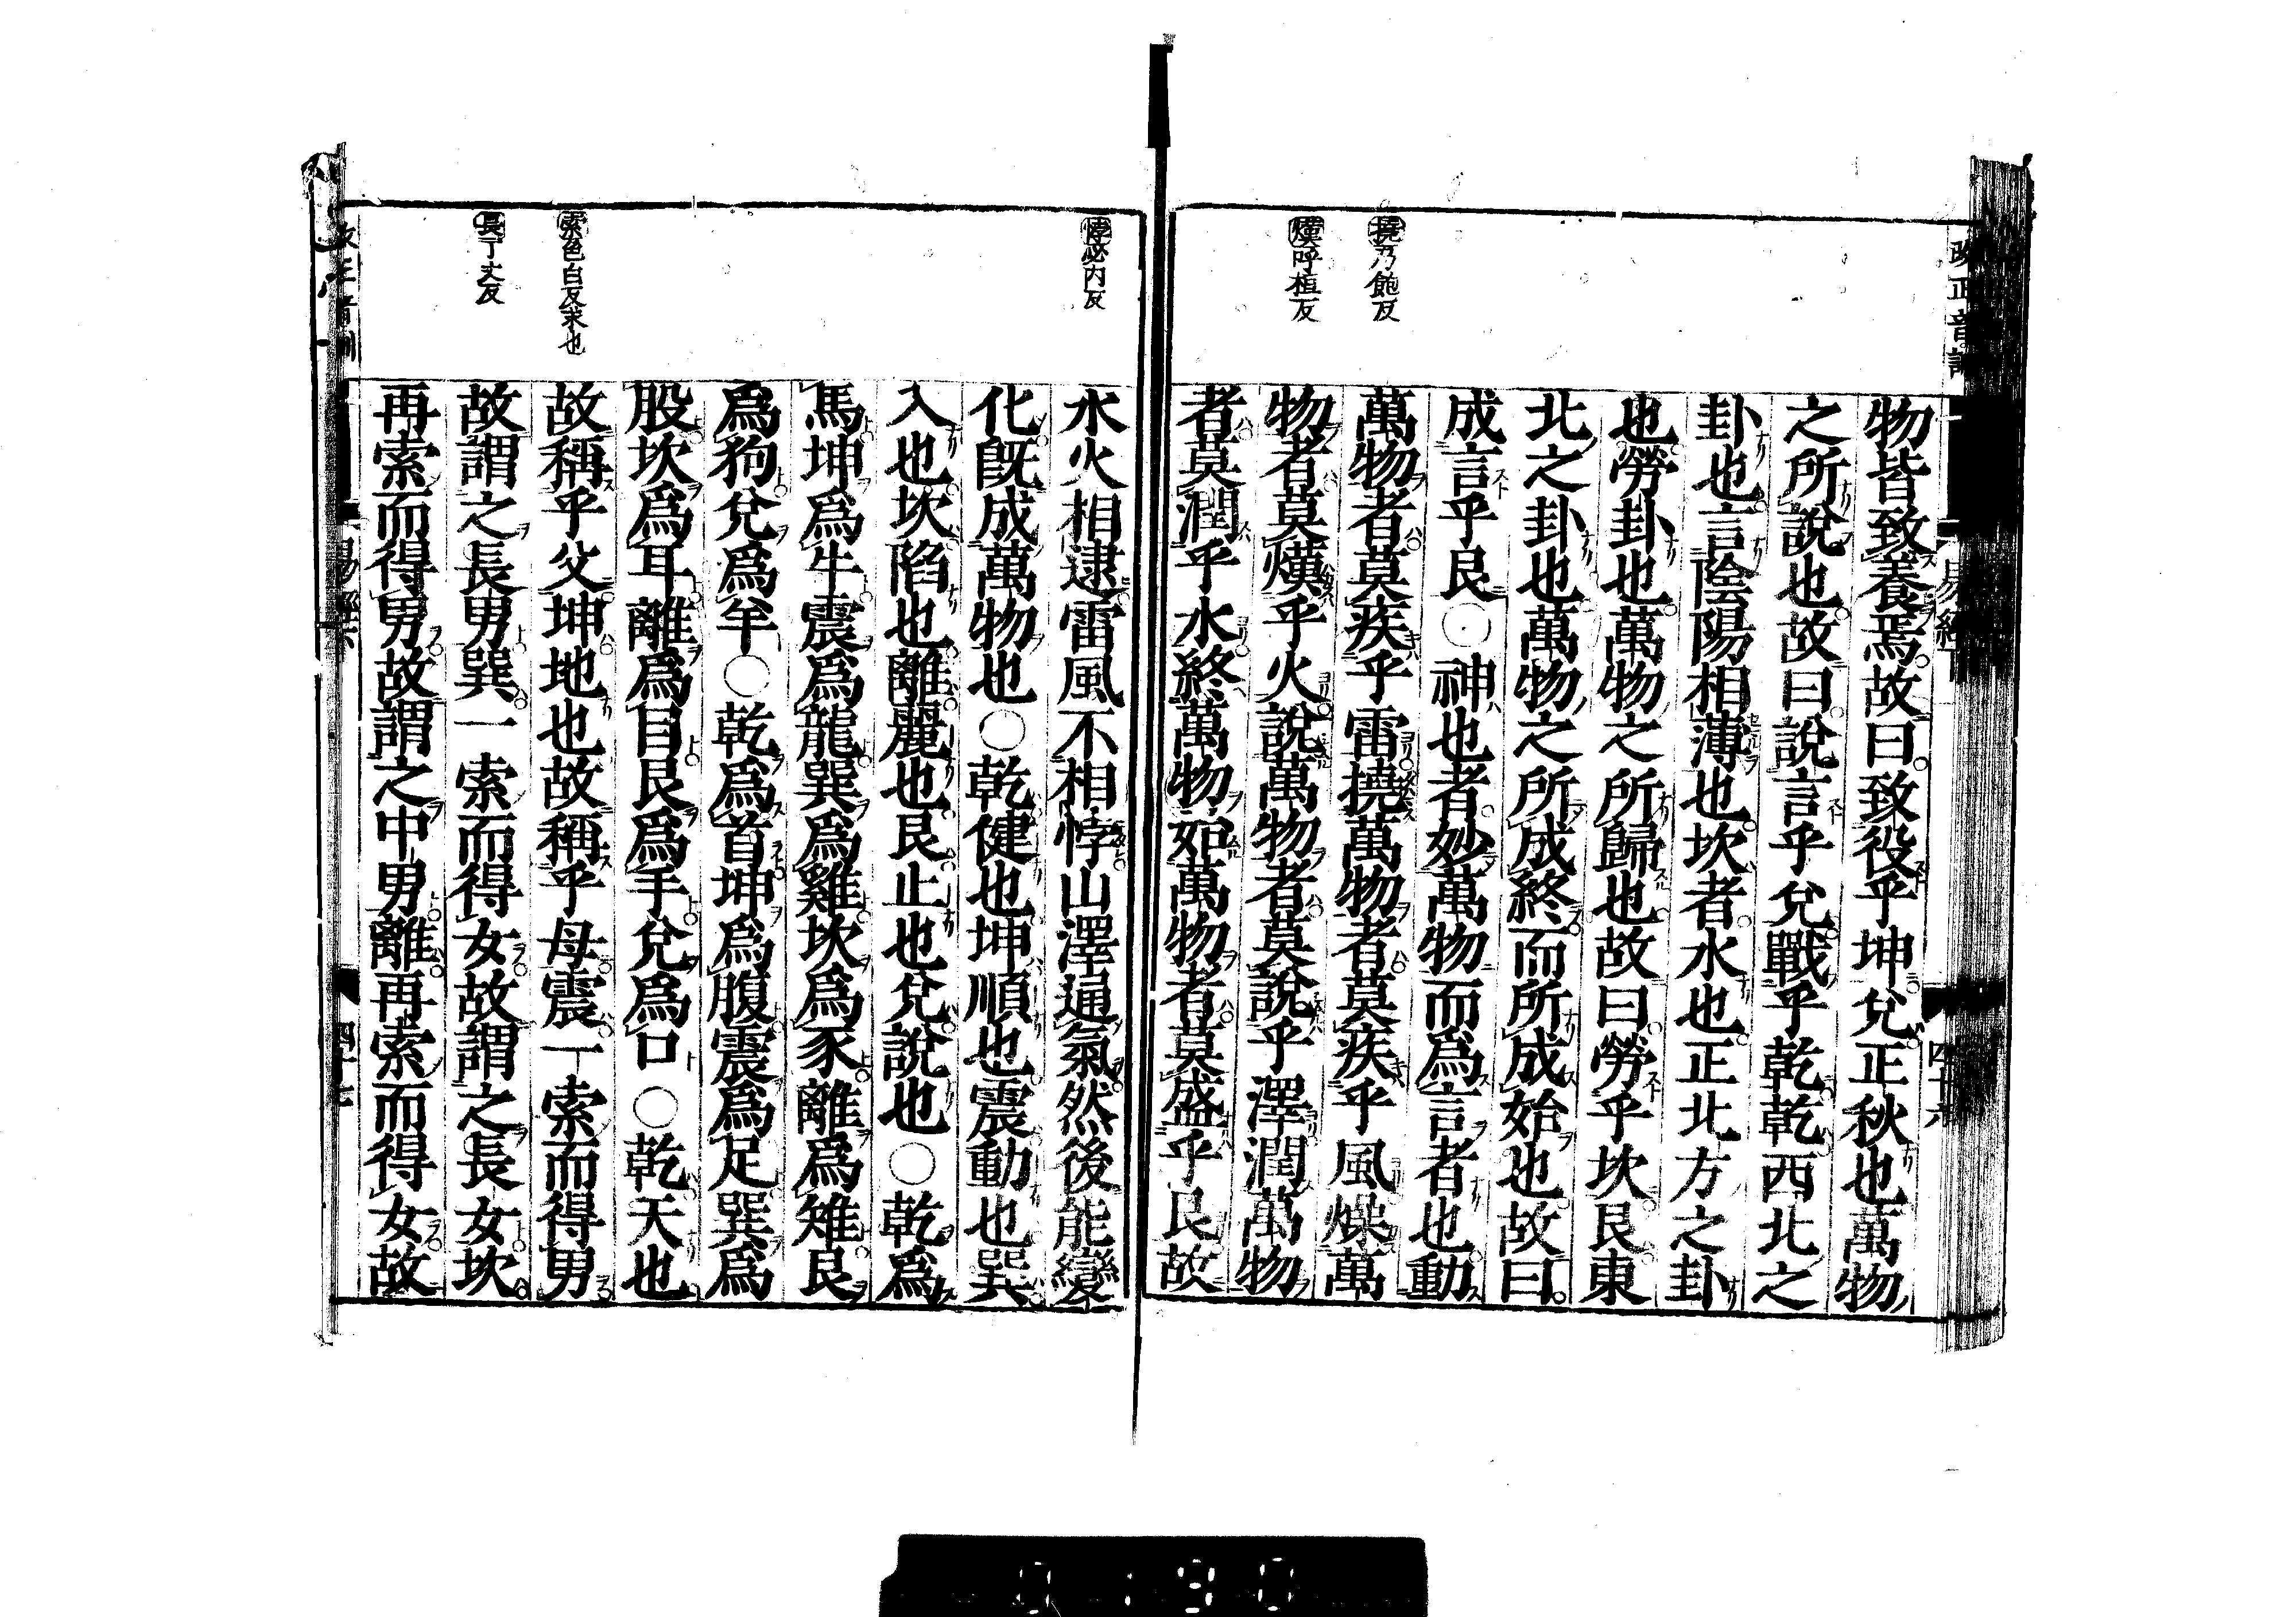 改正音訓
易經下
四十六
撓乃飽反
熯呼植反
物皆致養焉故曰致役乎坤兌正秋也萬物
之所說也故曰說言乎兌戰乎乾乾西北之
卦也言陰陽相薄也坎者水也正北方之卦
也勞卦也萬物之所歸也故曰勞乎坎艮東
北之卦也萬物之所成終而所成始也故曰
成言乎艮○神也者妙萬物而爲言者也動
萬物者莫疾乎雷撓萬物者莫疾乎風燥萬
物者莫熯乎火說萬物者莫說乎澤潤萬物
者莫潤乎水終萬物始萬物者莫盛乎艮故
悖必內反
索色白反求也
長丁丈反
水火相逮雷風不相悖山澤通氣然後能變
化既成萬物也○乾健也坤順也震動也巽
入也坎陷也離麗也艮止也兌說也○乾爲
馬坤爲牛震爲龍巽爲雞坎爲豕離爲雉艮
爲狗兌爲羊○乾爲首坤爲腹震爲足巽爲
股坎爲耳離爲目艮爲手兌爲口○乾天也
故稱乎父坤地也故稱乎母震一索而得男
故謂之長男巽一索而得女故謂之長女坎
再索而得男故謂之中男離再索而得女故
易經下
四十七
0190